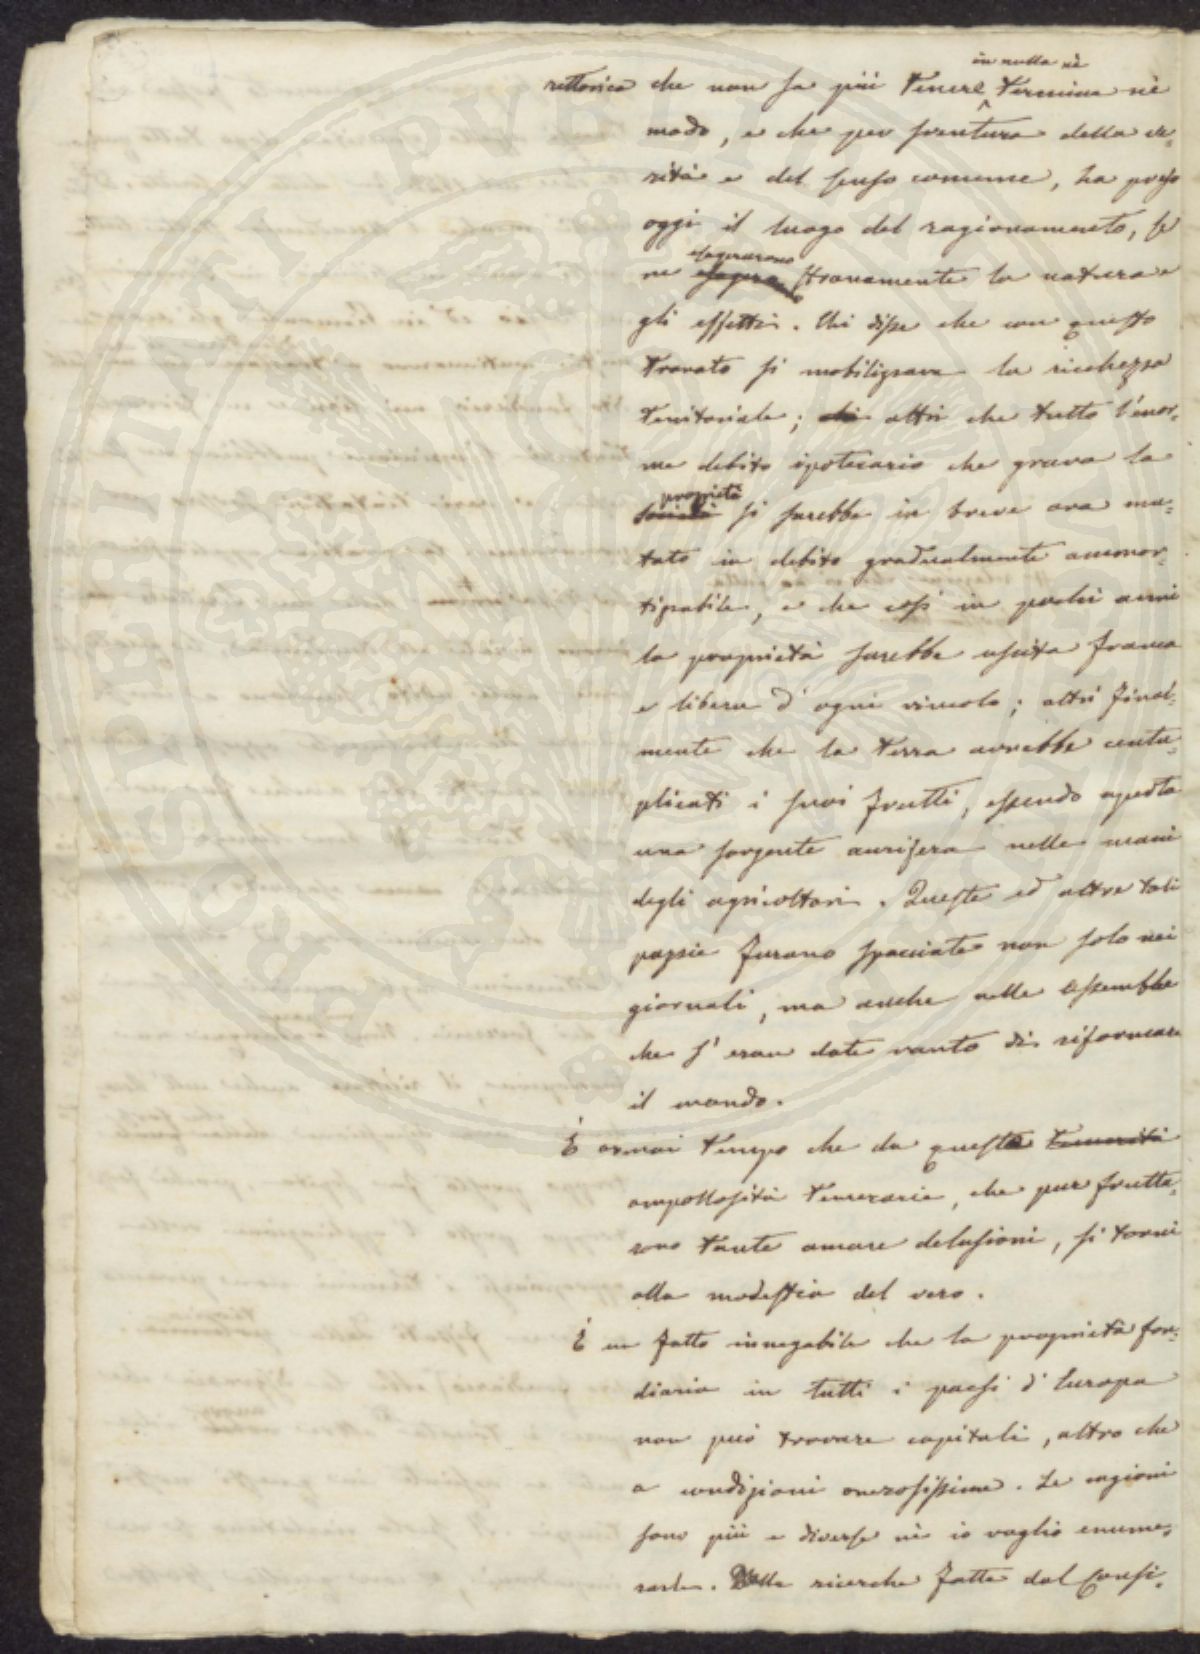 in nulla nè
rettorica che non sa più tenere termine nè
modo, e che per sventura della ve-
rità e del senso comune, ha preso
oggi il luogo del ragionamento, se
esagerarono
ne esagera stranamente la natura e
gli effetti. Chi disse che con questo
trovato si mobilizzava la ricchezza
territoriale; chi altri che tutto l'enor-
me debito ipotecario che grava la
proprietà
società si sarebbe in breve ora mu-
tato in debito gradualmente ammor-
tizzabile, e che così in pochi anni
la proprietà sarebbe uscita franca
e libera d'ogni vincolo; altri final-
mente che la terra avrebbe centu-
plicati i suoi frutti, essendo aperta
una sorgente aurifera nelle mani
degli agricoltori. Queste ed altre tali
pazzie furono spacciate non solo nei
giornali, ma anche nelle assemblee
che s'eran date vanto di riformare
il mondo.
È ormai tempo che da queste temerità
ampollosità temerarie, che pur frutta-
rono tante amare delusioni, si torni
alla modestia del vero.
È un fatto innegabile che la proprietà fon-
diaria in tutti i paesi d'Europa
non può trovare capitali, altro che
a condizioni onerosissime. Le cagioni
sono più e diverse nè io voglio enume-
rarle. Dalle ricerche fatte dal Consi-
PROSPERITATI PVBLICAE